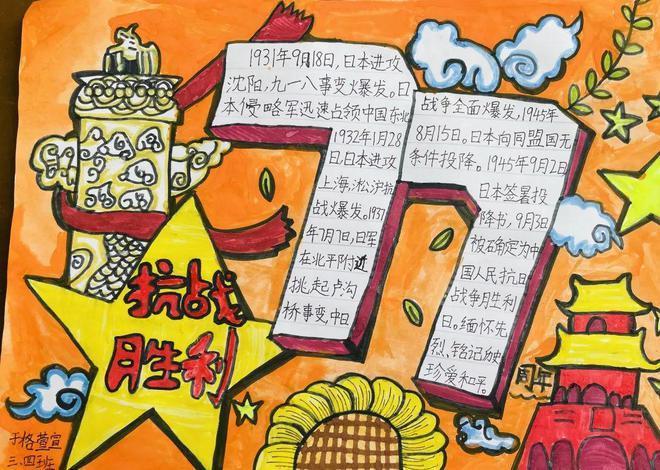 1931年9月18日,日本进攻
沈阳,九一八事变爆发。日
本侵略军迅速占领中国东北
1932年1月28
日,日本进攻
上海,淞沪抗
战爆发。1937
年7月7日,日军
在北平附近
挑起卢沟
桥事变,中日
战争全面爆发,1945年
8月15日。日本向同盟国无
条件投降。1945年9月2日
日本签署投
降书,9月3日
被确定为中
国人民抗日
战争胜利
日。缅怀先
烈、铭记历史
珍爱和平。
周年
抗战
胜利
于格萱宣
三.四班